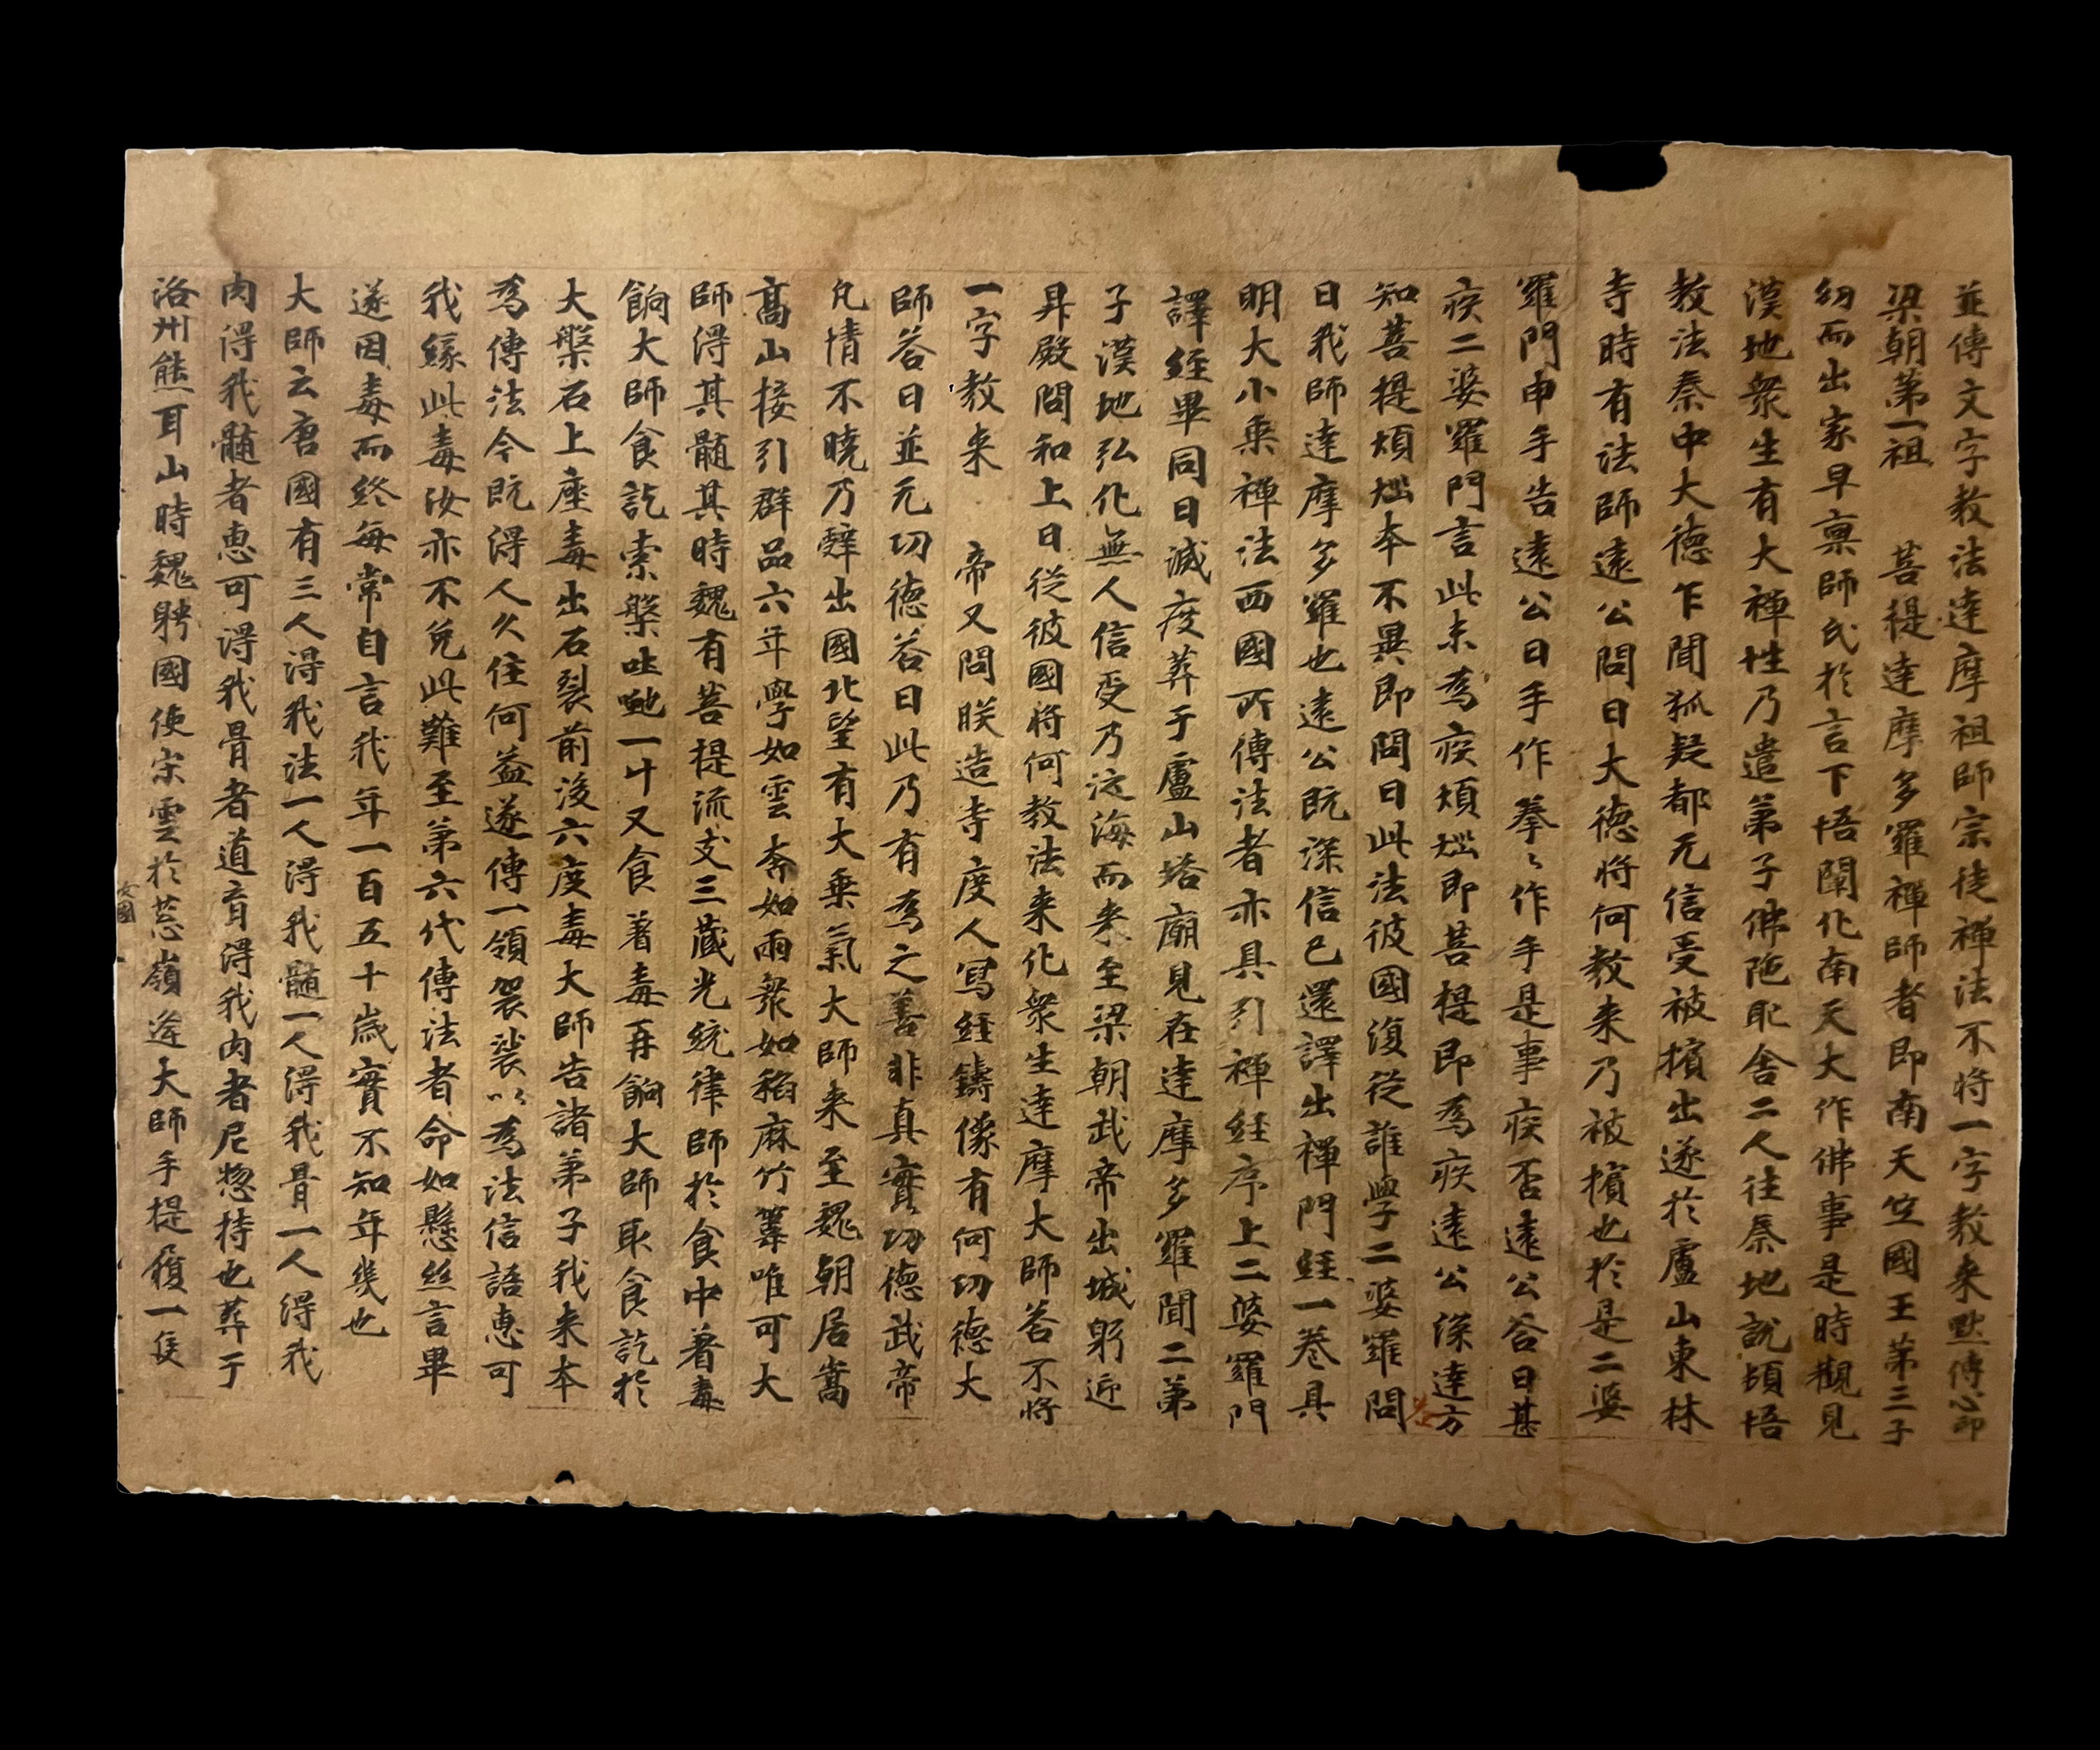 並傳文字教法達摩祖師宗徒禪法不將一字教来默傳心印
梁朝第一祖 菩提達摩多羅禪師者即南天竺國王第三子
幼而出家早稟師氏於言下悟闡化南天大作佛事是時觀見
漢地衆生有大禪性乃遣弟子佛陁耶舍二人往秦地說頓悟
教法秦中大德乍聞狐疑都无信受被擯出遂於廬山東林
寺時有法師遠公問曰大德将何教来乃被擯也於是二婆
羅門申手告遠公曰手作拳々作手是事疾否遠公荅曰甚
疾二婆羅門言此未為疾煩惱即菩提即為疾遠公深達方
知菩提煩惱本不異即問曰此法彼國復従誰學二婆羅門荅
曰我師達摩多羅也遠公既深信已還譯出禪門經一卷具
明大小乗禪法西國所傳法者亦具引禪經序上二婆羅門
譯經畢同日滅度葬于廬山塔廟見在達摩多羅聞二弟
子漢地弘化無人信受乃泛海而来至梁朝武帝出城躬迎
昇殿問和上曰従彼國将何教法来化衆生達摩大師荅不将
一字教来 帝又問朕造寺度人寫經鑄像有何功德大
師荅曰並无功德荅曰此乃有為之善非真實功德武帝
凡情不曉乃辭出國北望有大乗氣大師来至魏朝居嵩
高山接引群品六年學如雲奔如雨衆如稻麻竹葦唯可大
師得其髓其時魏有菩提流支三藏光統律師於食中著毒
餉大師食訖索槃吐虵一升又食著毒再餉大師取食訖於
大槃石上座毒出石裂前後六度毒大師告諸弟子我来本
為傳法今既得人久住何益遂傳一領袈裟以為法信語惠可
我緣此毒汝亦不免此難至第六代傳法者命如懸絲言畢
遂因毒而終每常自言我年一百五十歲實不知年幾也
大師云唐國有三人得我法一人得我髓一人得我骨一人得我
肉得我髓者惠可得我骨者道育得我肉者尼惣持也葬于
洛州熊耳山時魏聘國使宋雲於葱嶺逢大師手提履一隻